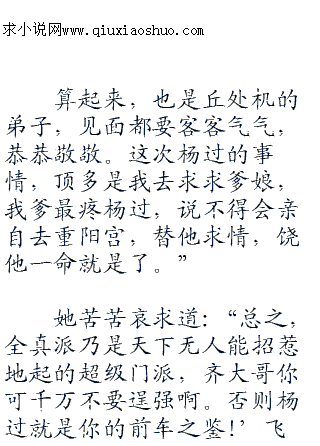 求小说网www.qiuxiaoshuo.com
算起来，也是丘处机的
弟子，见面都要客客气气，
恭恭敬敬。这次杨过的事
情，顶多是我去求求爹娘，
我爹最疼杨过，说不得会亲
自去重阳宫，替他求情，饶
他一命就是了。”
她苦苦哀求道：“总之，
全真派乃是天下无人能招惹
地起的超级门派，齐大哥你
可千万不要逞强啊。否则杨
过就是你的前车之鉴!’飞